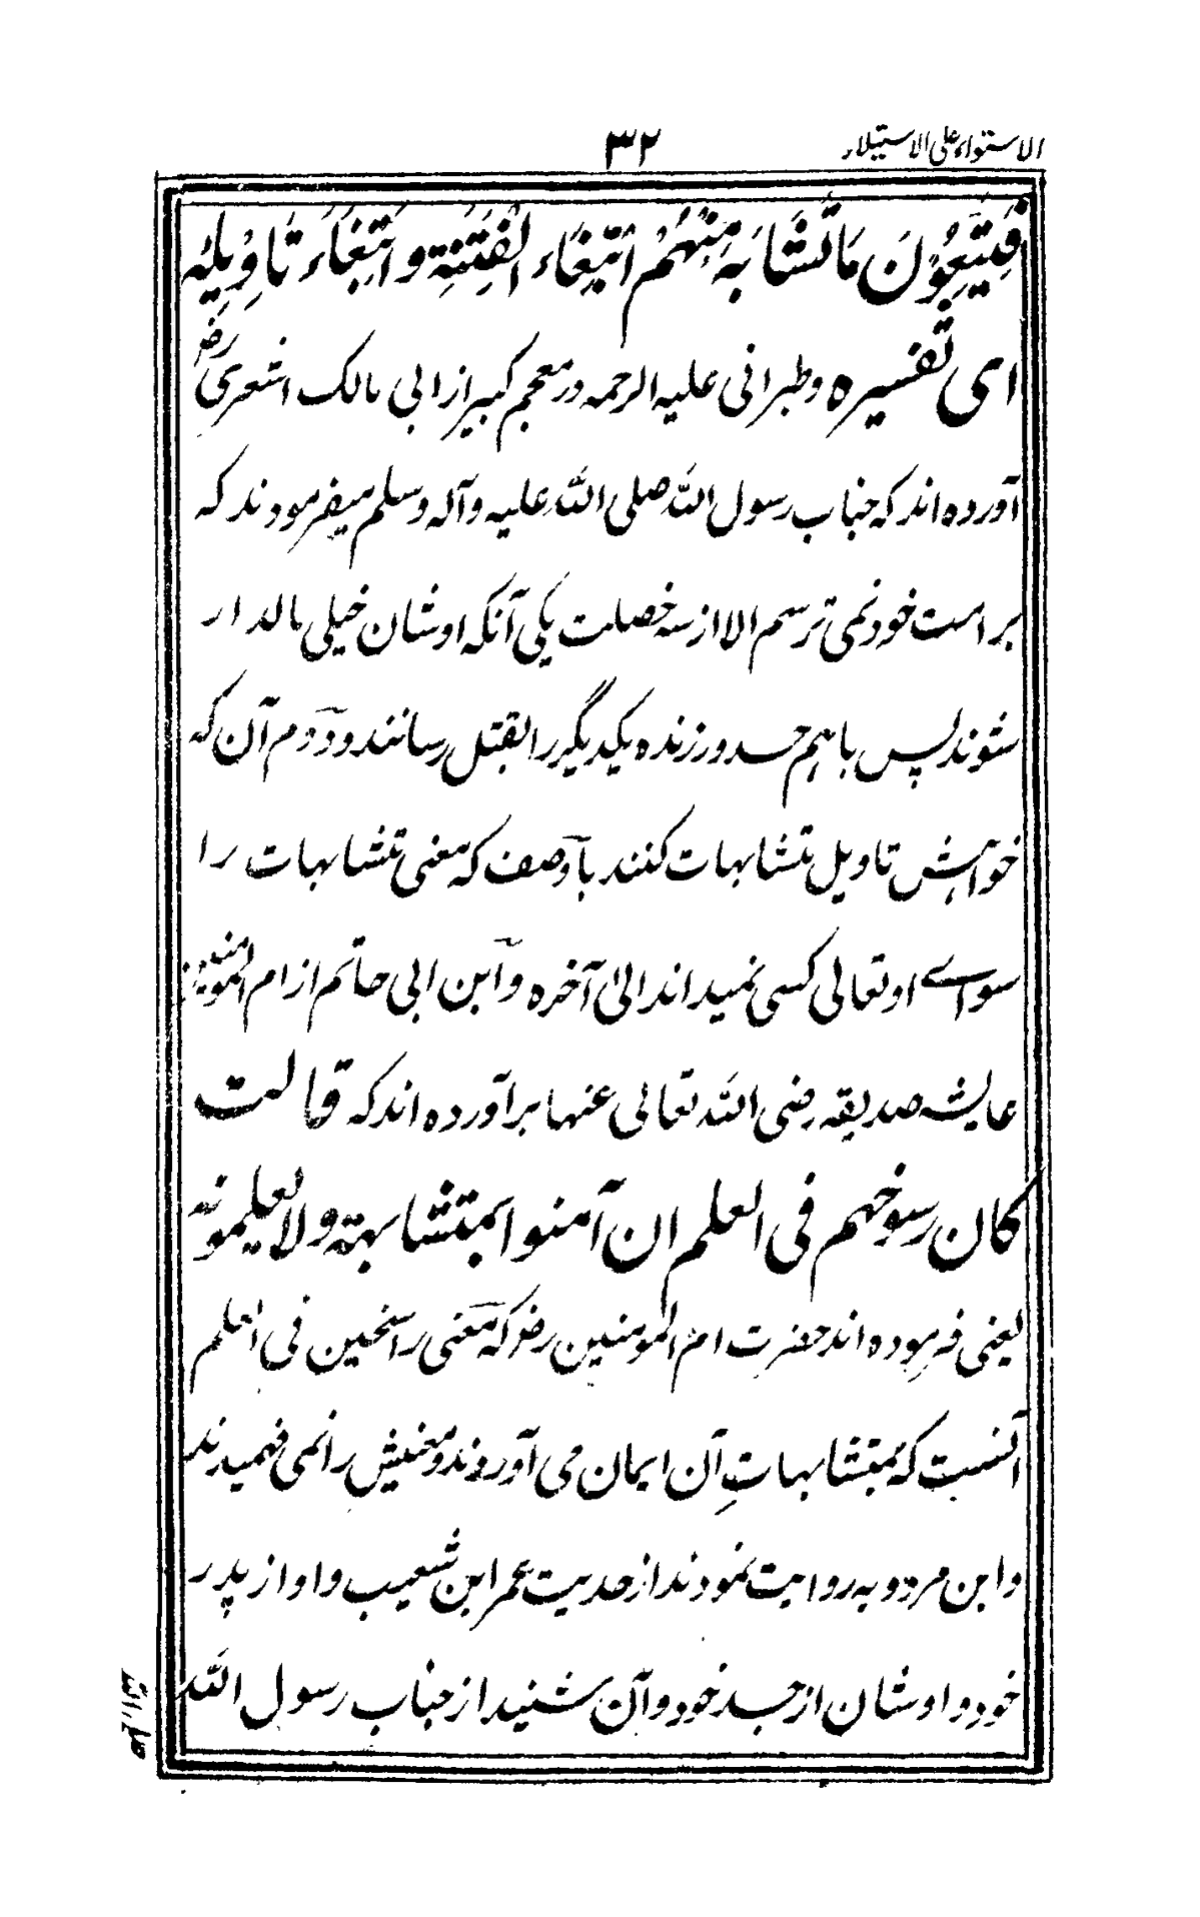 الاستواء على الاستیلاء
۳۲
فَيَتَّبِعُوْنَ مَا تَشَابَهَ مِنْهُمْ ابْتِغَاءَ الْفِتْنَةِ وَابْتِغَاءَ تَاوِيْلِهٖ
ای تفسیره وطبرانی علیه الرحمه در معجم کبیر از ابی مالک اشعری رض
آورده اند که جناب رسول الله صلی الله علیه وآله وسلم میفرمودند که
بر امت خود نمی ترسم الا از سه خصلت یکی آنکه اوشان خیلی مالدار
شوند پس باہم حسد ورزنده یکدیگر را بقتل رسانند و دوم آن که
خواہش تاویل متشابہات کنند با وصف که معنی متشابہات را
سواے او تعالی کسی نمیداند الی آخره و ابن ابی حاتم از ام المومنین
عایشه صدیقه رضی الله تعالی عنہا بر آورده اند که قالت
کان رسوخہم فی العلم ان آمنوا بمتشابہته ولا یعلمونه
یعنی فرموده اند حضرت ام المومنین رض که معنی راسخین فی العلم
آنست که بمتشابہاتِ آن ایمان می آوردند و معنیش را نمی فہمیدند
وابن مردویه روایت نمودند از حدیث عمر ابن شعیب و او از پدر
خود و اوشان از جد خود و آن شنید از جناب رسول الله
صلی الله